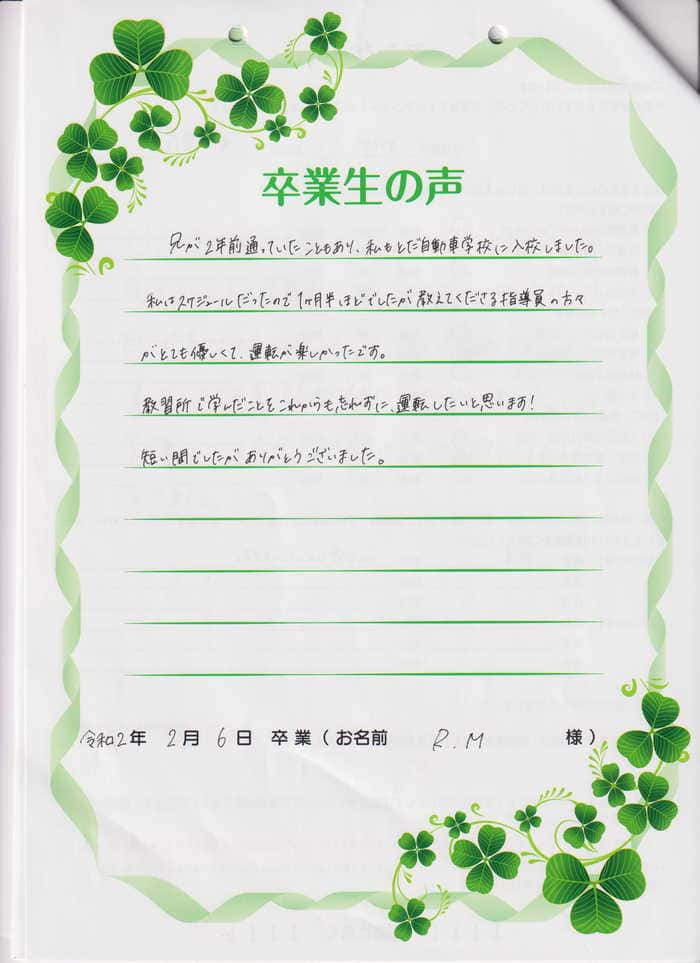 卒業生の声
兄が2年前通っていたこともあり、私もとだ自動車学校に入校しました。
私はスケジュールだったので1ヶ月半ほどでしたが教えてくださる指導員の方々
がとても優しくて、運転が楽しかったです。
教習所で学んだことをこれからも忘れずに、運転したいと思います！
短い間でしたがありがとうございました。
令和2年 2月 6日 卒業（お名前 R.M 様）